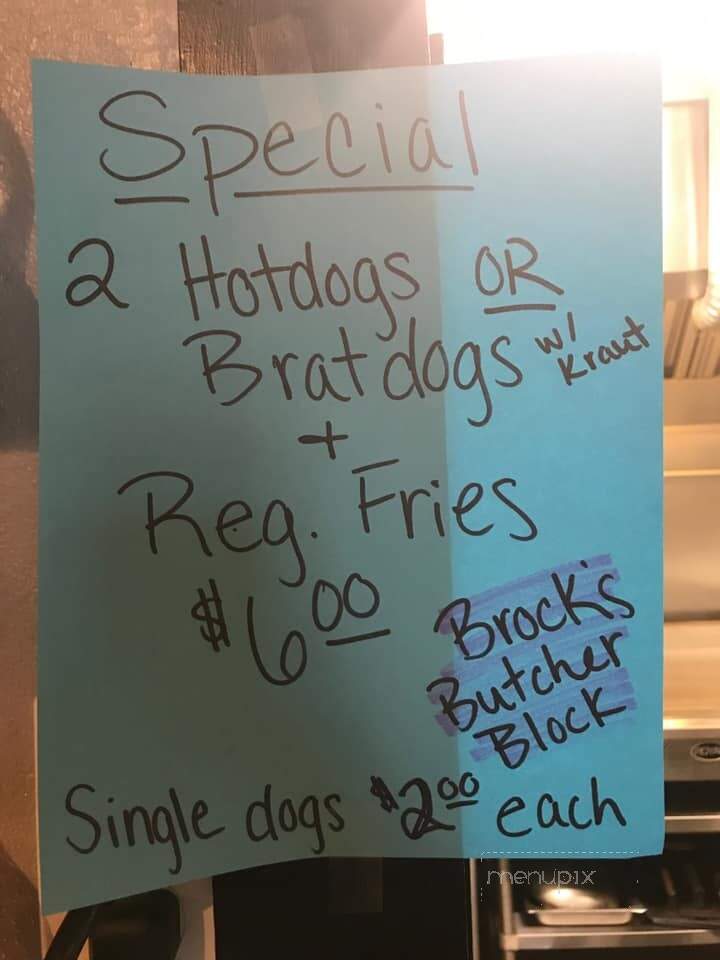 Special
2 Hotdogs OR
Bratdogs w/ Kraut
+
Reg. Fries
$6.00
Brock's
Butcher
Block
Single dogs $2.00 each
menupix